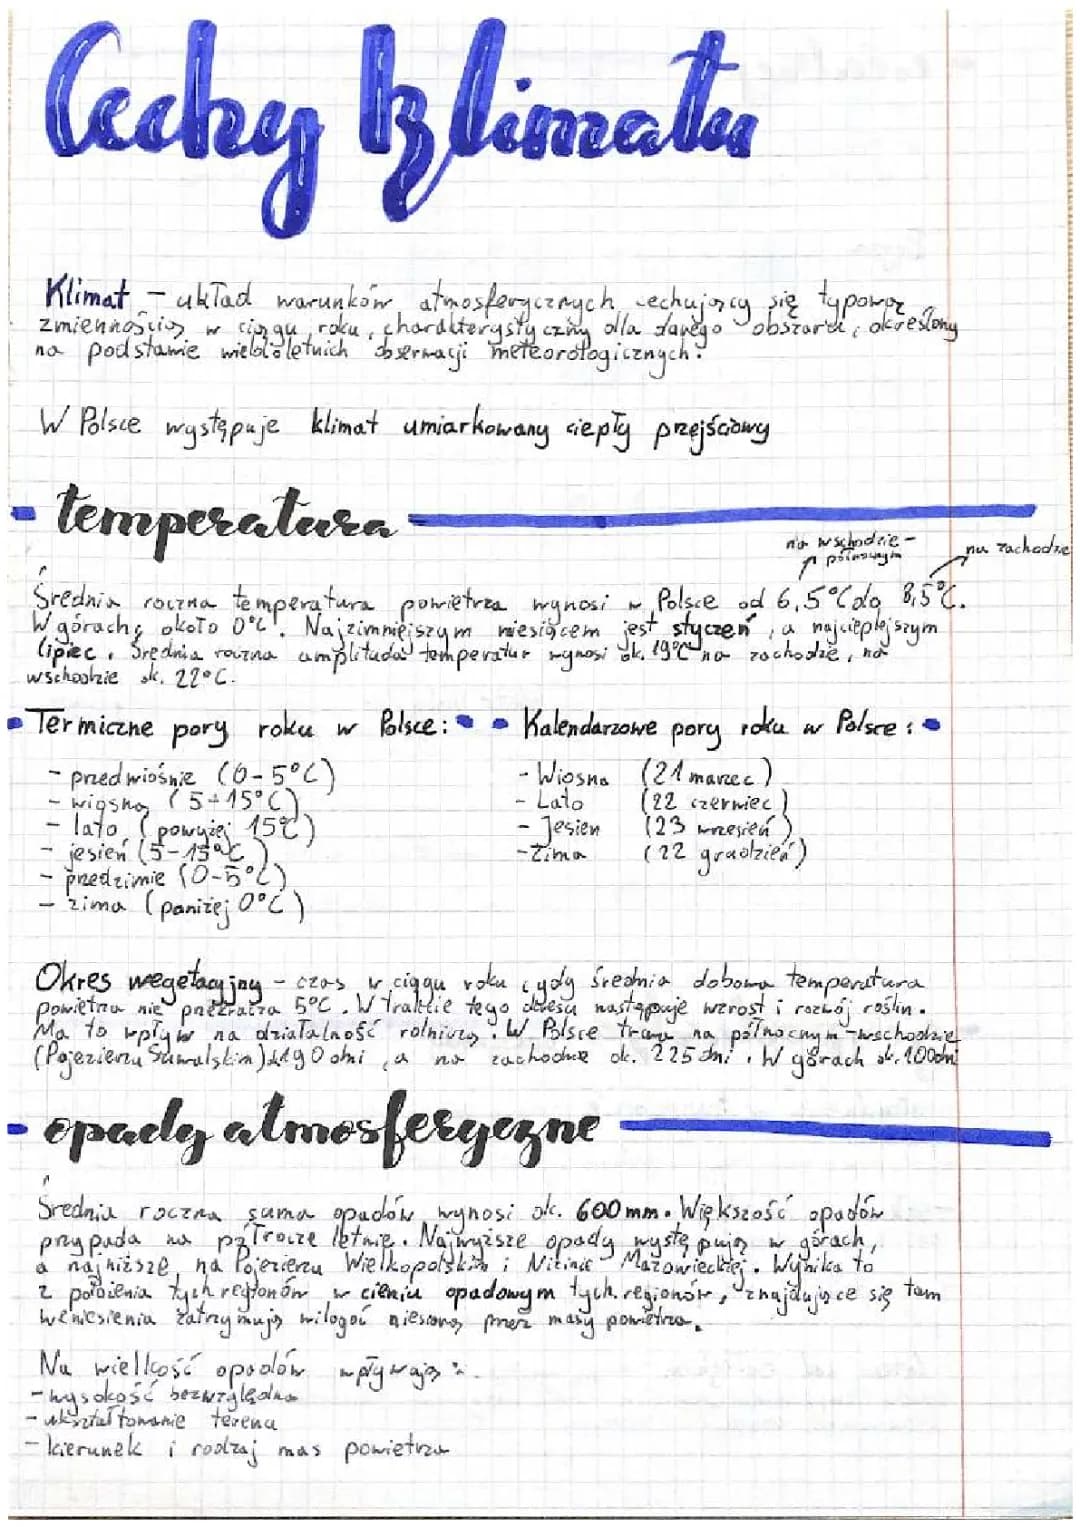 Cechy klimatu
Klimat - układ warunków atmosferycznych cechujący się typową
zmiennością w ciągu roku, charakterystyczny dla danego obszaru, określony
na podstawie wieloletnich obserwacji meteorologicznych.
W Polsce występuje klimat umiarkowany ciepły przejściowy
- temperatura
na wschodzie -
północnym
na zachodzie
Średnia roczna temperatura powietrza wynosi w Polsce od 6,5°C do 8,5°C.
W górach około 0°C. Najzimniejszym miesiącem jest styczeń, a najcieplejszym
lipiec. Średnia roczna amplituda temperatur wynosi ok. 19°C na zachodzie, na
wschodzie ok. 22°C.
Termiczne pory roku w Polsce:
- przedwiośnie (0-5°C)
- wiosna (5-15°C)
- lato (powyżej 15°C)
- jesień (5-15°C)
- przedzimie (0-5°C)
- zima (poniżej 0°C)
Kalendarzowe pory roku w Polsce:
- Wiosna (21 marzec)
- Lato (22 czerwiec)
- Jesien (23 wrzesień)
- Zima (22 grudzień)
Okres wegetacyjny - czas w ciągu roku gdy średnia dobowa temperatura
powietrza nie przekracza 5°C. W trakcie tego okresu następuje wzrost i rozwój roślin.
Ma to wpływ na działalność rolniczą. W Polsce trwa na północnym-wschodzie
(Pojezierzu Suwalskim) 190 dni, a na zachodzie ok. 225 dni. W górach ok. 100dni
- opady atmosferyczne
Średnia roczna suma opadów wynosi ok. 600mm. Większość opadów
przypada na półrocze letnie. Najwyższe opady występują w górach,
a najniższe na Pojezierzu Wielkopolskim i Nizinie Mazowieckiej. Wynika to
z położenia tych regionów w cieniu opadowym tych regionów, znajdujące się tam
wzniesienia zatrzymują wilgoć niesioną przez masy powietrza.
Na wielkość opadów wpływają:
- wysokość bezwzględna
- ukształtowanie terenu
- kierunek i rodzaj mas powietrza